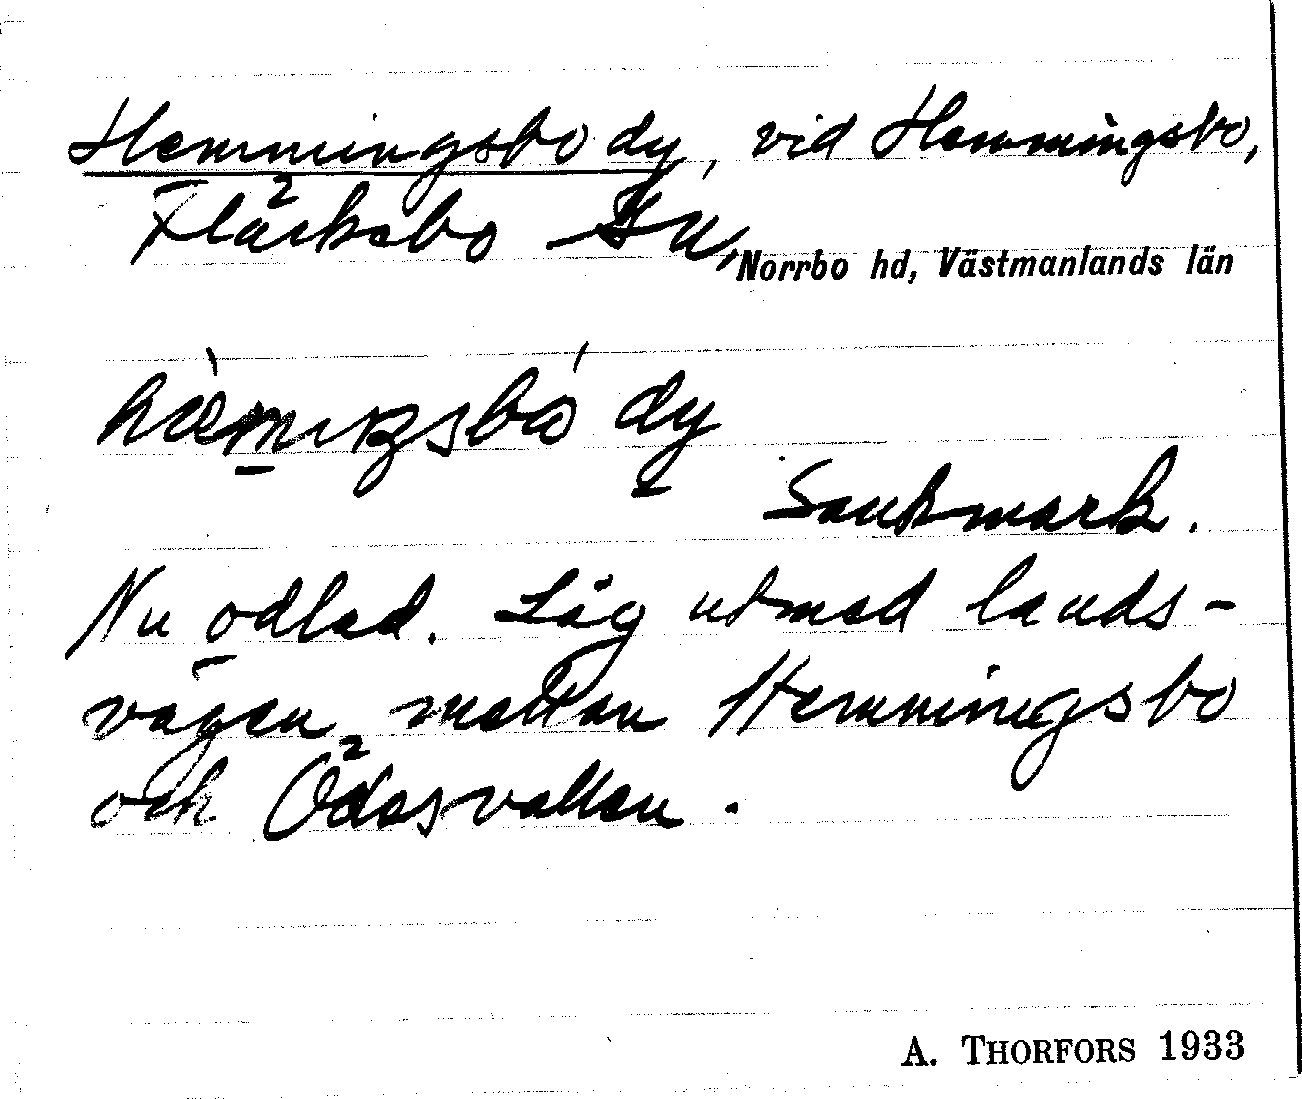 Hemmingsbo dy, vid Hemmingsbo,
Fläcksbo sn,
Norrbo hd, Västmanlands län
dy
Sankmark.
Nu odlad. Låg utmed lands-
vägen mellan Hemmingsbo
och Ödesvallen.
A. THORFORS 1933